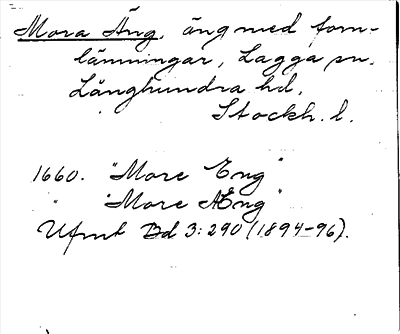 Mora Äng, äng med forn-
lämningar, Lagga sn.
Långhundra hd.
Stockh. l.
1660. "More Eng"
" "More AEng"
Ufmt Bd 3:290 (1894-96).